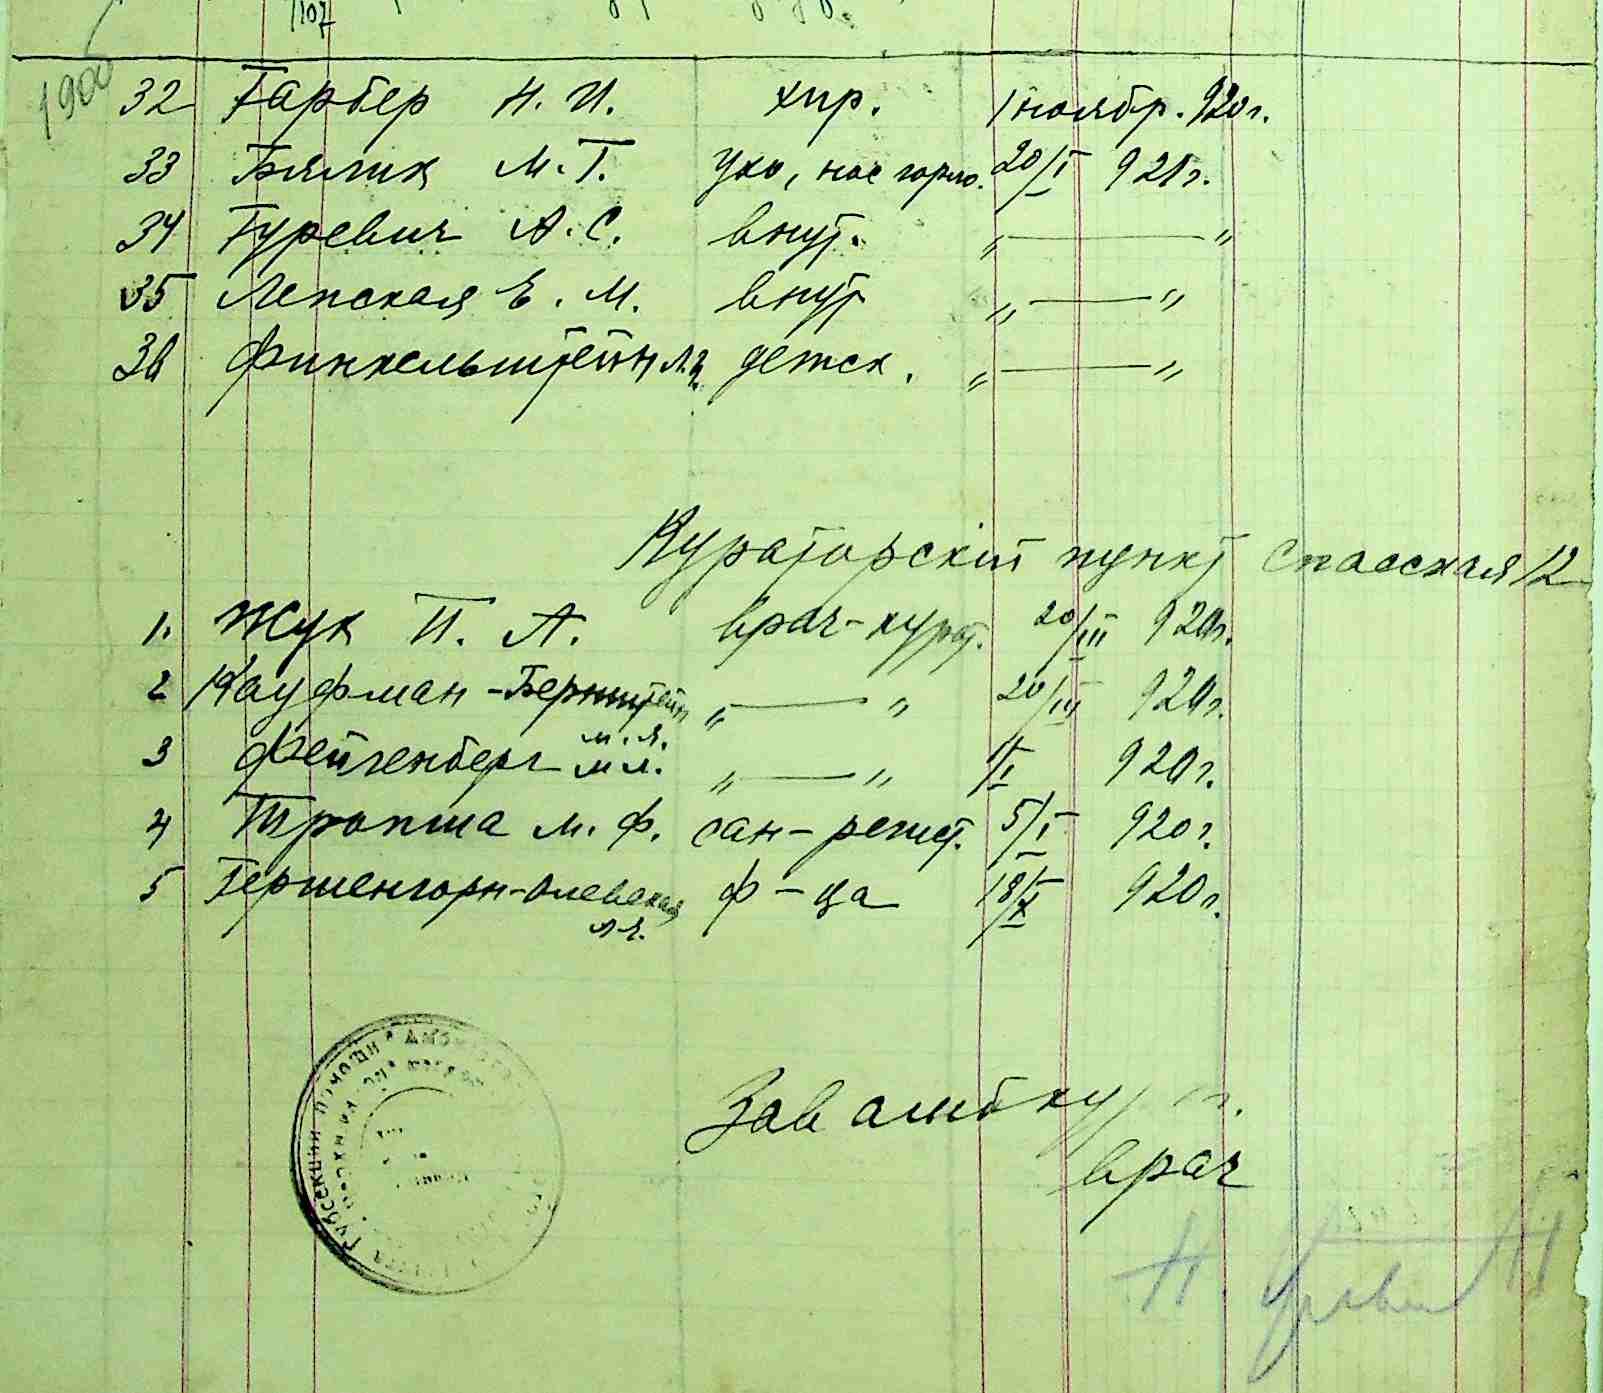 1107
1900
32 Гарбер Н. И. хир. 1 ноябр. 920 г.
33 Бялик М. Г. ухо, нос горло. 20/I 921 г.
34 Гуревич А. С. внут. „ — "
35 Лепская Е. М. внут „ — "
36 Финкельштейн детск. „ — "
Кураторский пункт Спасская 12
1. Жук П. А. врач-курат. 20/III 920 г.
2 Кауфман-Бернштейн „ — " 20/III 920 г.
М. Я.
3 Фейгенберг М. Л. „ — " 1/I 920 г.
4 Тропша М. Ф. сан- 5/I 920 г.
5 Гершенгорн-Олевская ф-ца 18/X 920 г.
Зав амб
врач
Н.
Губсекции помощи